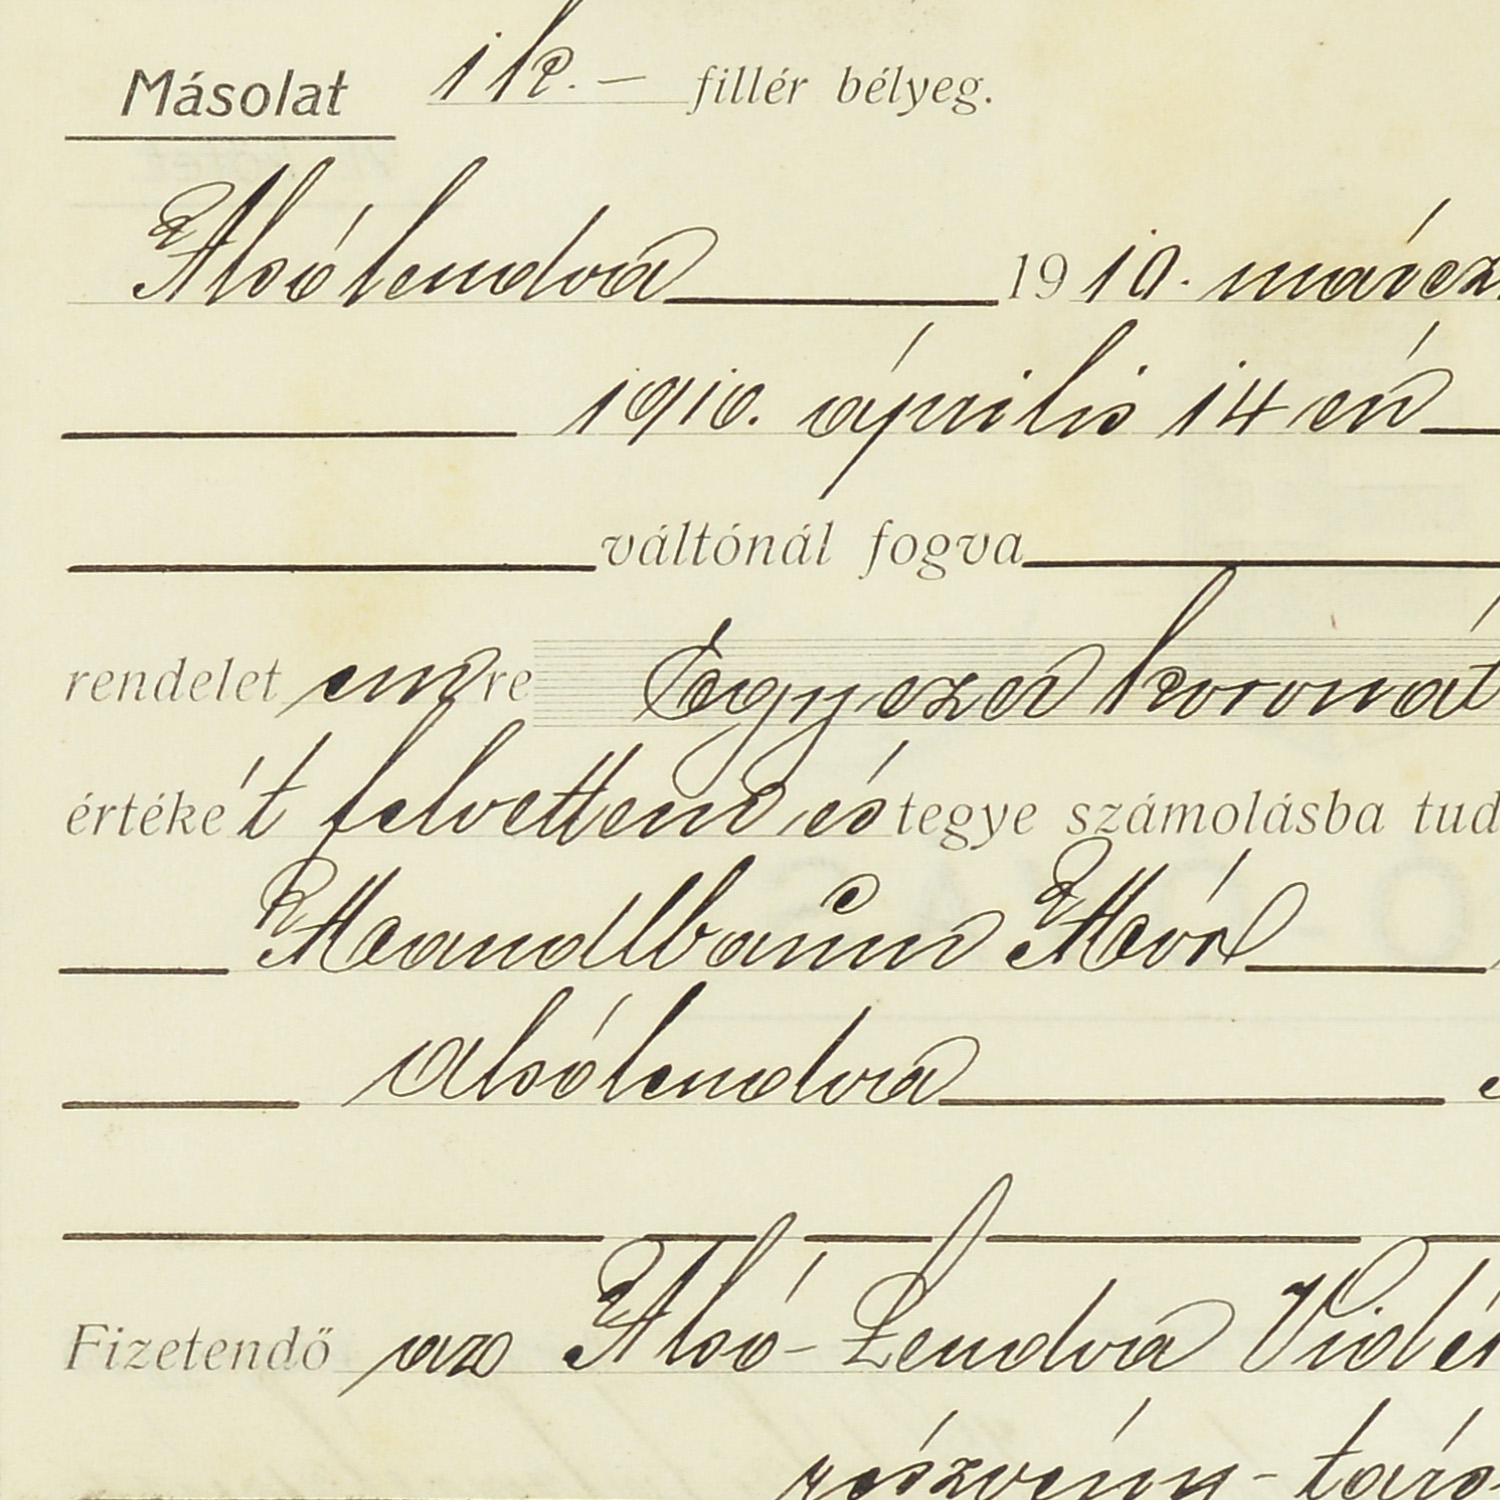 Másolat 1 k. — fillér bélyeg.
Alsólendva 1910. márcz
1910. április 14 én
váltónál fogva
rendelet em re Egyezer koronát
értéke't felvettem és tegye számolásba tud
Mandlbaum Mór
Alsólendva
Fizetendő az Alsó-Lendva Vidé
részvény-társ